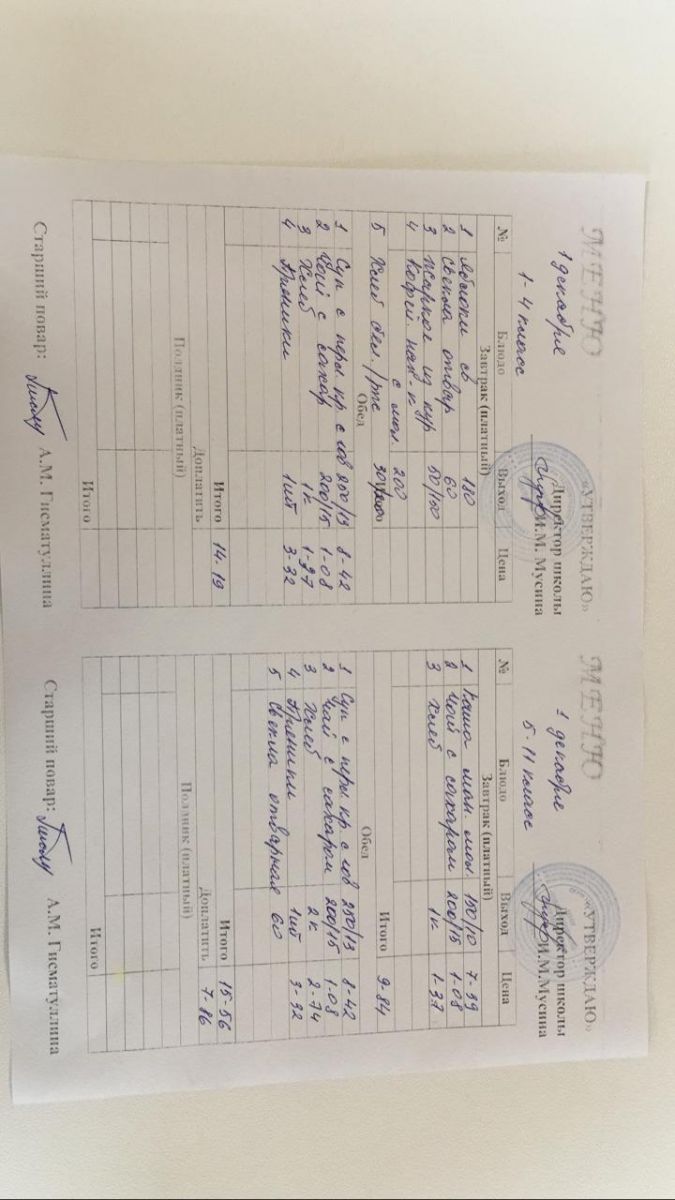 МЕНЮ
«УТВЕРЖДАЮ»
Директор школы
И.М. Мусина
1 декабря
1-4 класс
№ Блюдо Выход Цена
Завтрак (платный)
1 Яблоки св 110
2 Свекла отвар 60
3 Жаркое из кур 50/150
4 Кофей. нап-к
с мол. 200
5 Хлеб бел./рж
Обед
1 Суп с перл. кр с гов 250/13 8-42
2 Чай с сахар 200/15 1-08
3 Хлеб 1к 1-37
4 Пряники 1шт 3-32
Итого 14-19
Доплатить
Полдник (платный)
Итого
Старший повар: А.М. Гисматуллина
МЕНЮ
«УТВЕРЖДАЮ»
Директор школы
И.М.Мусина
1 декабря
5-11 класс
№ Блюдо Выход Цена
Завтрак (платный)
1 Каша ман. мол. 150/10 7-39
2 Чай с сахаром 200/15 1-08
3 Хлеб 1к 1-37
Итого 9-84
Обед
1 Суп с перл. кр с гов 250/13 8-42
2 Чай с сахаром 200/15 1-08
3 Хлеб 2к 2-74
4 Пряники 1шт 3-32
5 Свекла отварная 60
Итого 15-56
Доплатить 7-86
Полдник (платный)
Итого
Старший повар: А.М. Гисматуллина